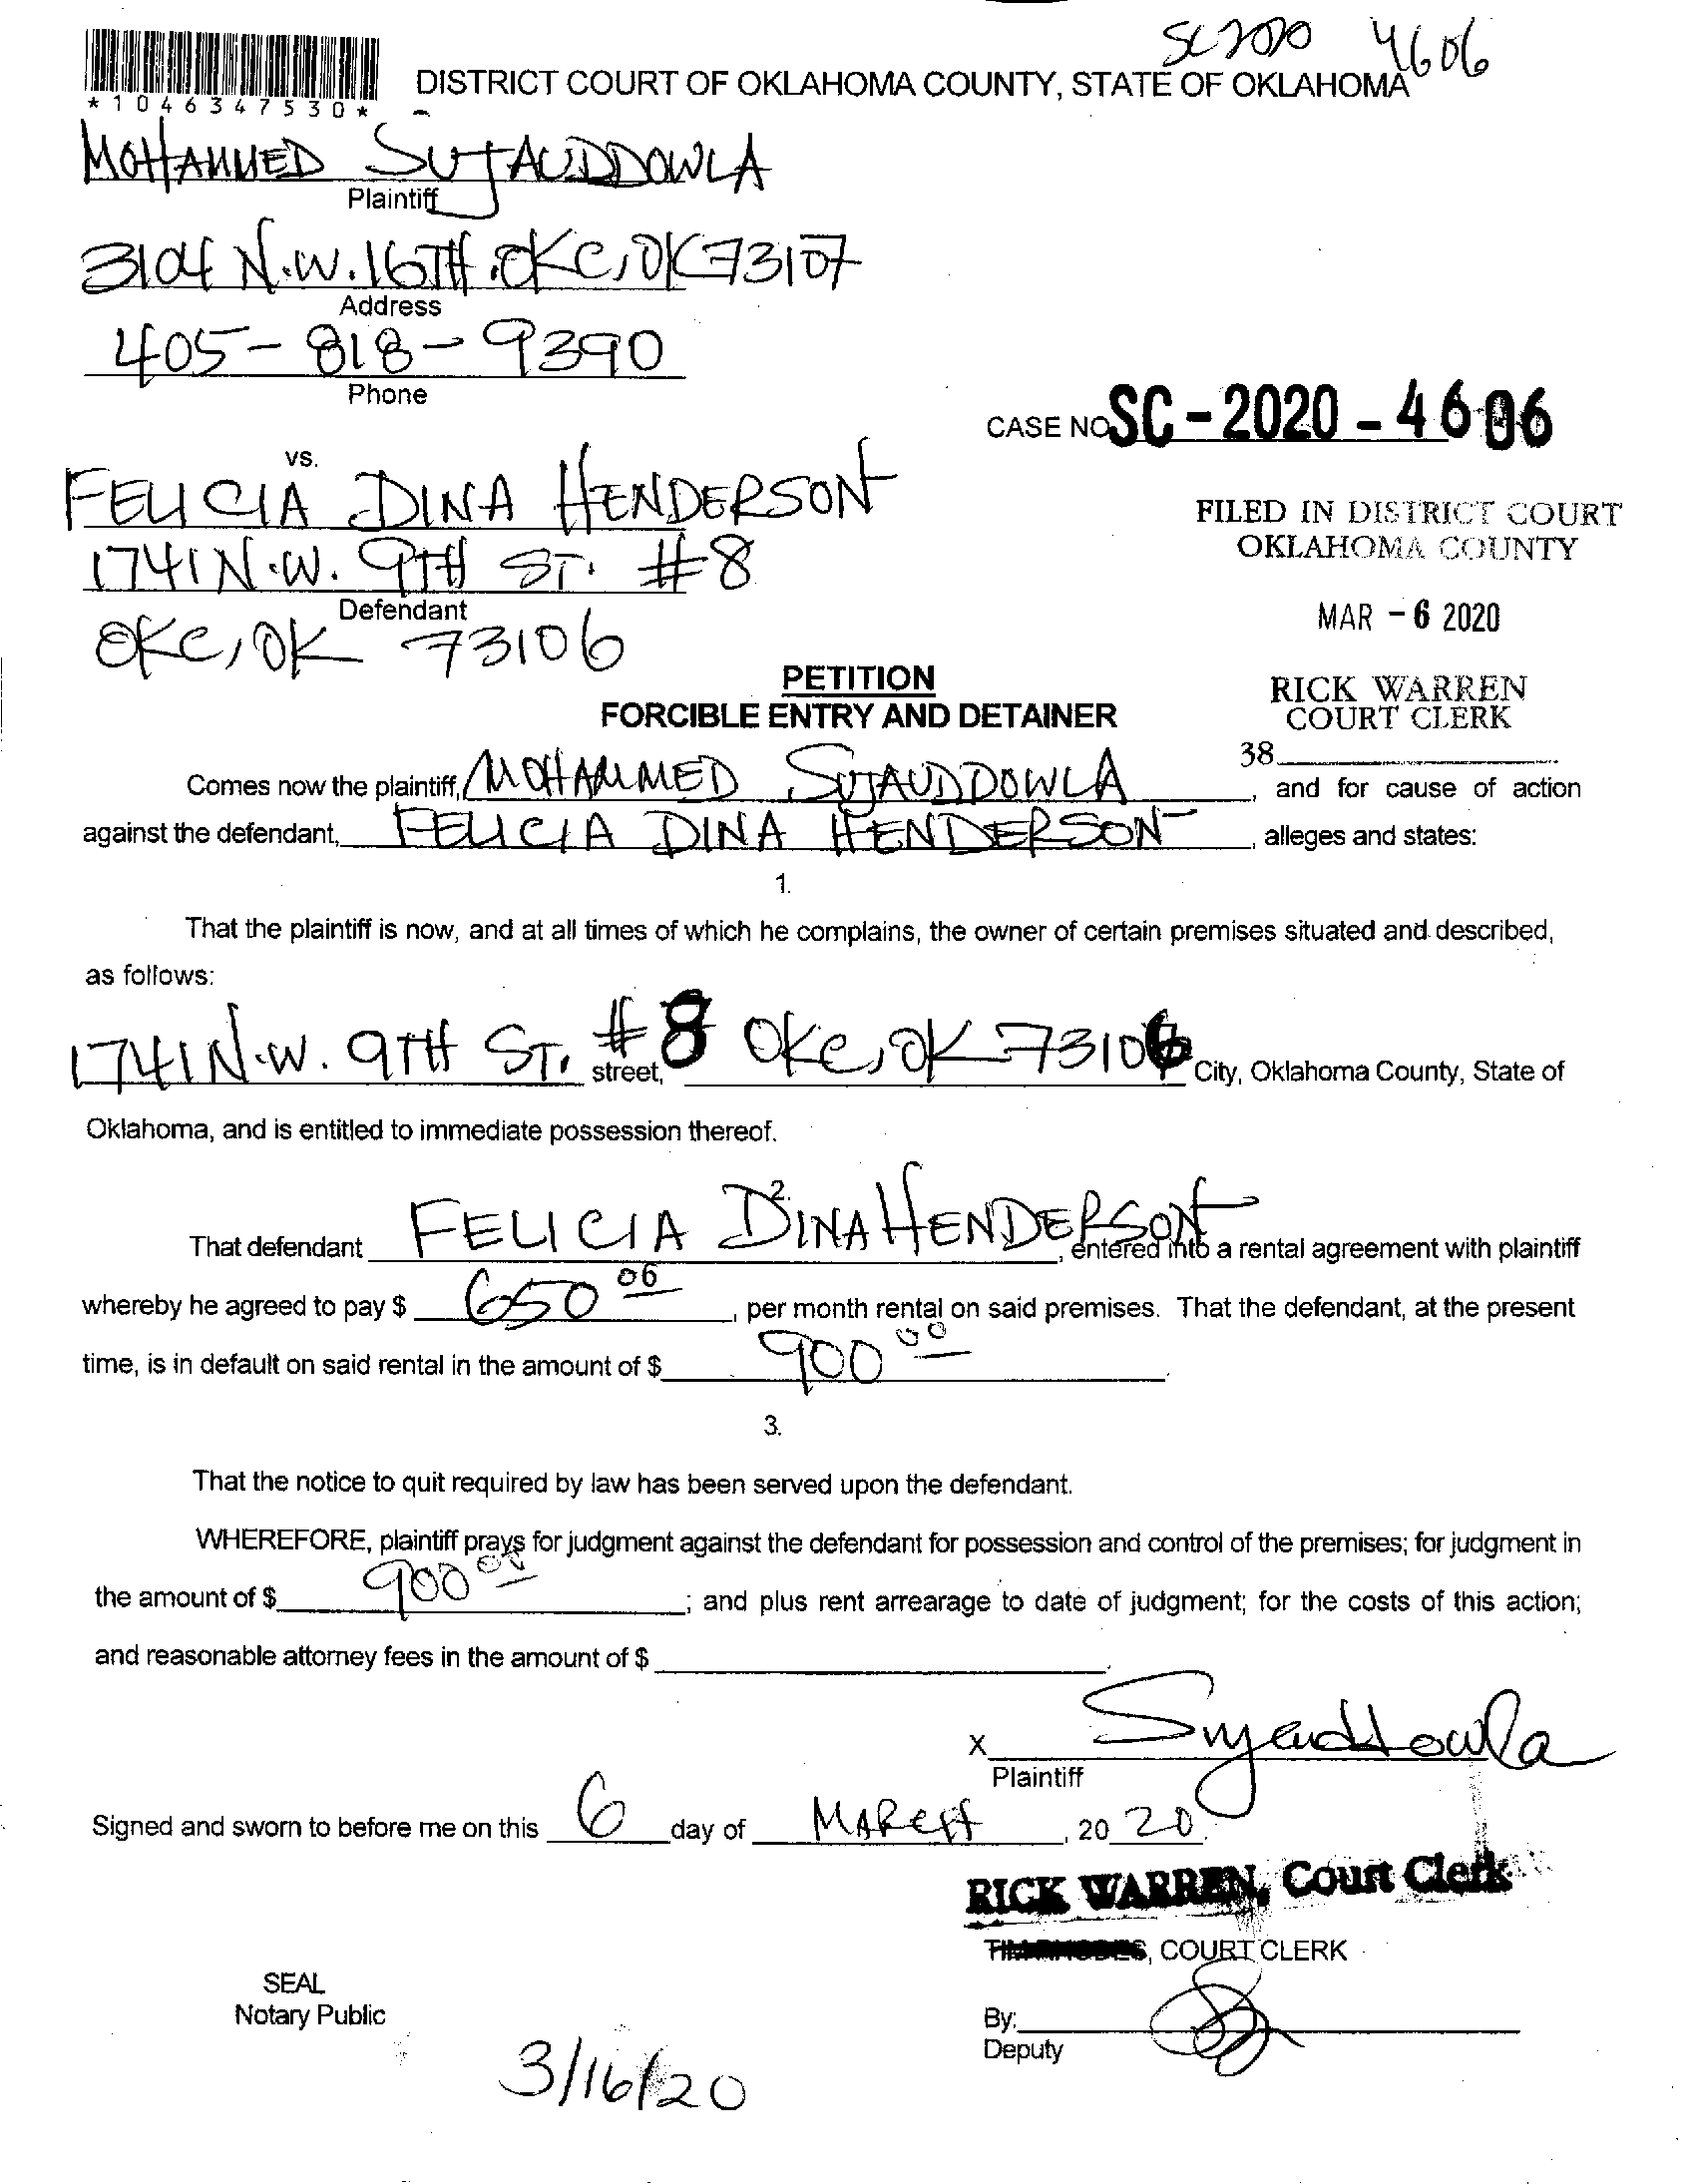 SC2020 4606
*1046347530*
DISTRICT COURT OF OKLAHOMA COUNTY, STATE OF OKLAHOMA
MOHAMMED SUJAUDDOWLA
Plaintiff
3104 N.W. 16TH. OKC, OK 73107
Address
405-818-9390
Phone
CASE NO. SC-2020-4606
vs.
FELICIA DINA HENDERSON
1741 N.W. 9TH ST. #8
Defendant
OKC, OK 73106
FILED IN DISTRICT COURT
OKLAHOMA COUNTY
MAR -6 2020
RICK WARREN
COURT CLERK
38
PETITION
FORCIBLE ENTRY AND DETAINER
Comes now the plaintiff, MOHAMMED SUJAUDDOWLA, and for cause of action
against the defendant, FELICIA DINA HENDERSON, alleges and states:
1.
That the plaintiff is now, and at all times of which he complains, the owner of certain premises situated and described,
as follows:
1741 N.W. 9TH ST. #8 street, OKC, OK 73106 City, Oklahoma County, State of
Oklahoma, and is entitled to immediate possession thereof.
2.
That defendant FELICIA DINA HENDERSON, entered into a rental agreement with plaintiff
whereby he agreed to pay $ 650 00, per month rental on said premises. That the defendant, at the present
time, is in default on said rental in the amount of $ 900 00.
3.
That the notice to quit required by law has been served upon the defendant.
WHEREFORE, plaintiff prays for judgment against the defendant for possession and control of the premises; for judgment in
the amount of $ 900 00; and plus rent arrearage to date of judgment; for the costs of this action;
and reasonable attorney fees in the amount of $
X Sujauddowla
Plaintiff
Signed and sworn to before me on this 6 day of MARCH, 20 20.
RICK WARREN, Court Clerk
, COURT CLERK
SEAL
Notary Public
By:
Deputy
3/16/20